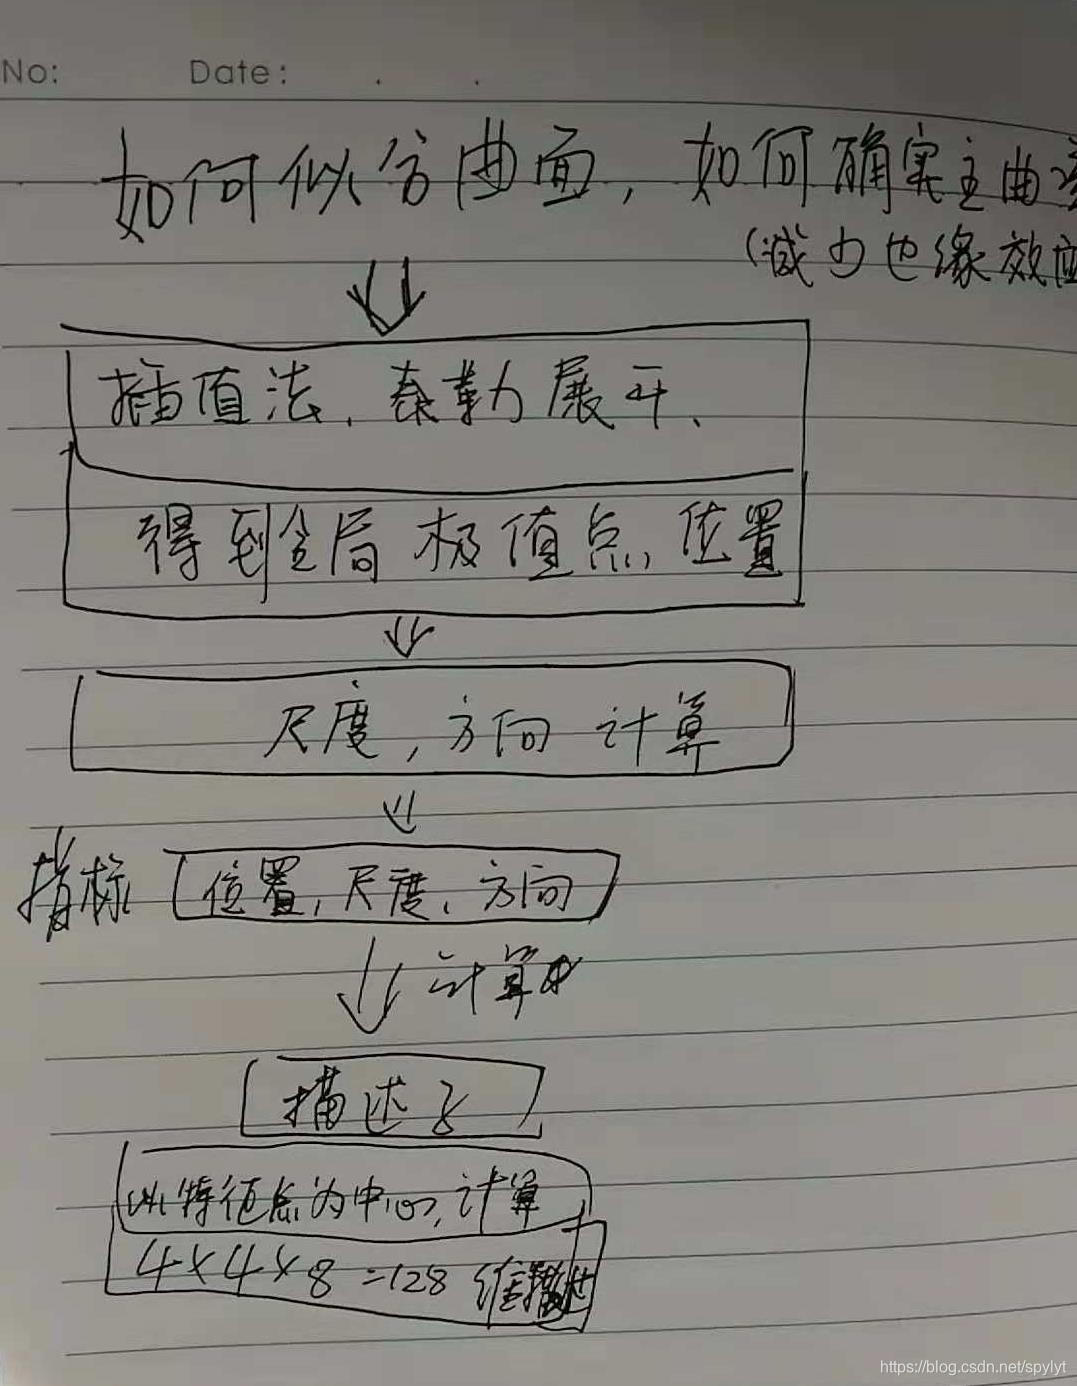 No: Date: . .
如何似合曲面,如何确定主曲
(减少边缘效应
插值法、泰勒展开、
得到全局极值点,位置
尺度,方向 计算
指标 位置,尺度,方向
计算
描述子
以特征点为中心,计算
4×4×8=128 维
https://blog.csdn.net/spylyt